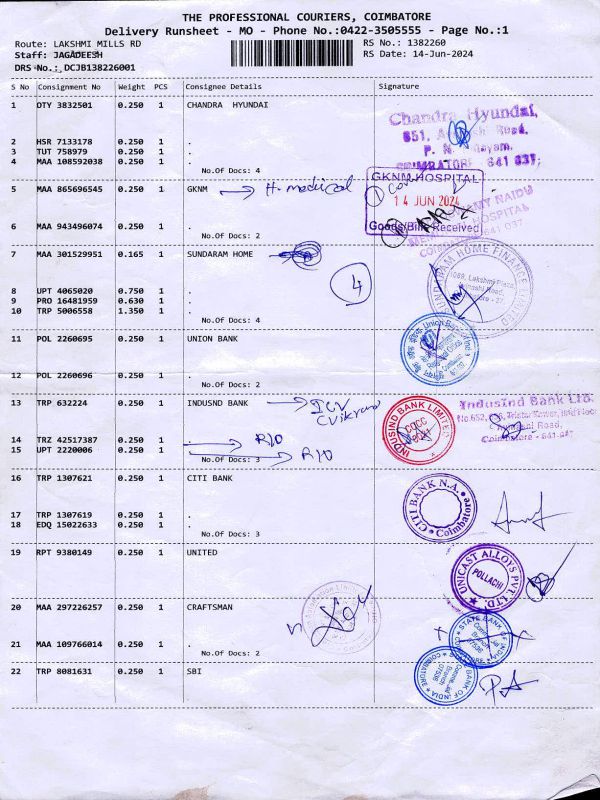 THE PROFESSIONAL COURIERS, COIMBATORE
Delivery Runsheet - MO - Phone No.:0422-3505555 - Page No.:1
Route: LAKSHMI MILLS RD
RS No.: 1382260
Staff: JAGADEESH
RS Date: 14-Jun-2024
DRS No.: DCJB138226001
S No Consignment No Weight PCS Consignee Details Signature
1 OTY 3832501 0.250 1 CHANDRA HYUNDAI
Chandra Hyundai,
COIMBATORE 641 037;
2 HSR 7133178 0.250 1 .
3 TUT 758979 0.250 1 .
4 MAA 108592038 0.250 1 .
No.Of Docs: 4
5 MAA 865696545 0.250 1 GKNM
GKNM HOSPITAL
14 JUN 2024
Goods/Bills Received
6 MAA 943496074 0.250 1 .
No.Of Docs: 2
7 MAA 301529951 0.165 1 SUNDARAM HOME
SUNDARAM HOME FINANCE LIMITED
4
8 UPT 4065020 0.750 1 .
9 PRO 16481959 0.630 1 .
10 TRP 5006558 1.350 1 .
No.Of Docs: 4
11 POL 2260695 0.250 1 UNION BANK
12 POL 2260696 0.250 1 .
No.Of Docs: 2
13 TRP 632224 0.250 1 INDUSND BANK
INDUSIND BANK LIMITED
IndusInd Bank Ltd.
Coimbatore - 641
14 TRZ 42517387 0.250 1 . R10
15 UPT 2220006 0.250 1 . R10
No.Of Docs: 3
16 TRP 1307621 0.250 1 CITI BANK
CITI BANK N.A.
Coimbatore
17 TRP 1307619 0.250 1 .
18 EDQ 15022633 0.250 1 .
No.Of Docs: 3
19 RPT 9380149 0.250 1 UNITED
UNICAST ALLOYS PVT. LTD.
POLLACHI
20 MAA 297226257 0.250 1 CRAFTSMAN
STATE BANK OF INDIA
21 MAA 109766014 0.250 1 .
No.Of Docs: 2
22 TRP 8081631 0.250 1 SBI